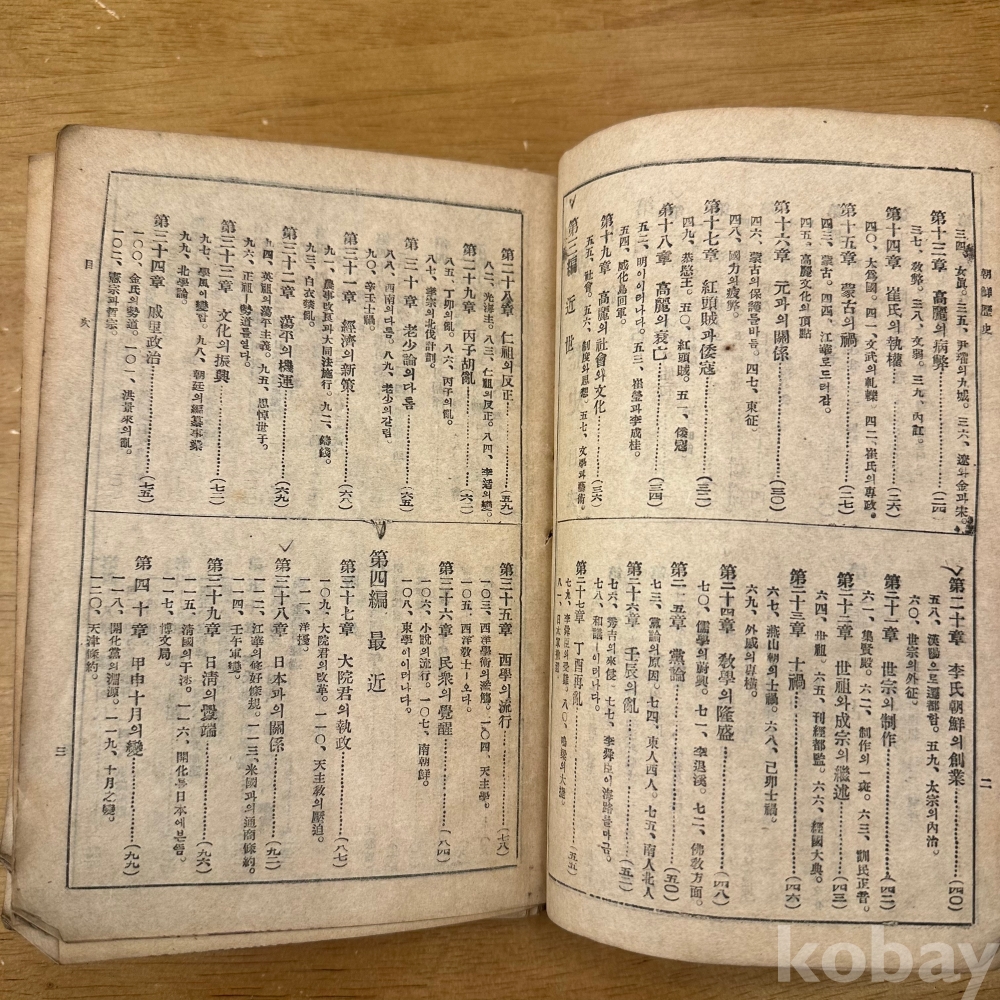 朝鮮歷史
三四、女眞。三五、尹瓘의九城。三六、遼와金과宋。
第十三章 高麗의病弊……(二四)
三七、敎弊。三八、文弱。三九、內訌。
第十四章 崔氏의執權……(二六)
四〇、大爲國。四一、文武의軋轢。四二、崔氏의專政。
第十五章 蒙古의禍……(二七)
四三、蒙古。四四、江華로드러감。
四五、高麗文化의頂點
第十六章 元과의關係……(三〇)
四六、蒙古의保護를바듬。四七、東征。
四八、國力의疲弊。
第十七章 紅頭賊과倭寇……(三二)
四九、恭愍王。五〇、紅頭賊。五一、倭寇
第十八章 高麗의衰亡……(三四)
五二、明이이러나다。五三、崔瑩과李成桂。
五四、威化島回軍。
第十九章 高麗의社會와文化……(三六)
五五、社會。五六、制度와思想。五七、文學과藝術。
第三編 近世
第二十章 李氏朝鮮의創業……(四〇)
五八、漢陽으로遷都함。五九、太宗의內治。
六〇、世宗의外征。
第二十一章 世宗의制作……(四二)
六一、集賢殿。六二、制作의一斑。六三、訓民正音。
第二十二章 世祖와成宗의繼述……(四三)
六四、世祖。六五、刊經都監。六六、經國大典。
第二十三章 士禍……(四六)
六七、燕山朝의士禍。六八、己卯士禍。
六九、外戚의專橫。
第二十四章 敎學의隆盛……(四八)
七〇、儒學의蔚興。七一、李退溪。七二、佛敎方面。
第二十五章 黨論……(五〇)
七三、黨論의原因。七四、東人西人。七五、南人北人
第二十六章 壬辰의亂……(五二)
七六、秀吉의來侵。七七、李舜臣이海路를마금。
七八、和議—이러나다。
第二十七章 丁酉再亂……(五五)
七九、李舜臣의受難。八〇、鳴梁의大捷。
二
第二十八章 仁祖의反正……(五九)
八二、光海主。八三、仁祖의反正。八四、李适의變。
第二十九章 丙子胡亂……(六二)
八五、丁卯의亂。八六、丙子의亂。
八七、孝宗의北伐計劃。
第三十章 老少論의다툼……(六五)
八八、西南의다틈。八九、老少의갈림。
九〇、辛壬士禍。
第三十一章 經濟의新策……(六八)
九一、農事改良과大同法施行。九二、鑄錢。
九三、白衣禁亂。
第三十二章 蕩平의機運……(六九)
九四、英祖의蕩平主義。九五、思悼世子。
九六、正祖—勢道를열다。
第三十三章 文化의振興……(七二)
九七、學風이變함。九八、朝廷의編纂事業
九九、北學論。
第三十四章 戚里政治……(七五)
一〇〇、金氏의勢道。一〇一、洪景來의亂。
一〇二、憲宗과哲宗。
第三十五章 西學의流行……(七八)
一〇三、西洋學術의濫觴。一〇四、天主學。
一〇五、西洋敎士—오다。
第三十六章 民衆의覺醒……(八四)
一〇六、小說의流行。一〇七、南朝鮮。
一〇八、東學이이러나다。
第四編 最近
第三十七章 大院君의執政……(八七)
一〇九、大院君의改革。一一〇、天主敎의壓迫。
一一一、洋擾。
第三十八章 日本과의關係……(九二)
一一二、江華의修好條規。一一三、米國과의通商條約。
一一四、壬午軍變。
第三十九章 日淸의釁端……(九六)
一一五、淸國의干涉。一一六、開化를日本에본밧음。
一一七、博文局。
第四十章 甲申十月의變……(九九)
一一八、開化黨의淵源。一一九、十月之變。
一二〇、天津條約。
目次
三
kobay